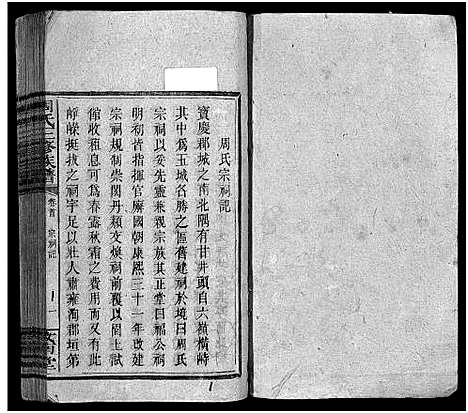 周氏宗祠記
寶慶郡城之南北隅有甘井頭自六嶺橫峙
其中為玉城名勝之區舊建祠於境曰周氏
宗祠以妥先靈兼親宗族其正堂曰福公祠
明初皆指揮官廨國朝康熙三十一年改建
宗祠規制崇閎丹頪文煥祠前覆以閏上試
館收租息可為春露秋霜之費用而又以
崢嶸挺拔之祠字足以壯人肅雍蕩郡垣第
周氏三修族譜
卷首
宗祠記
一
1